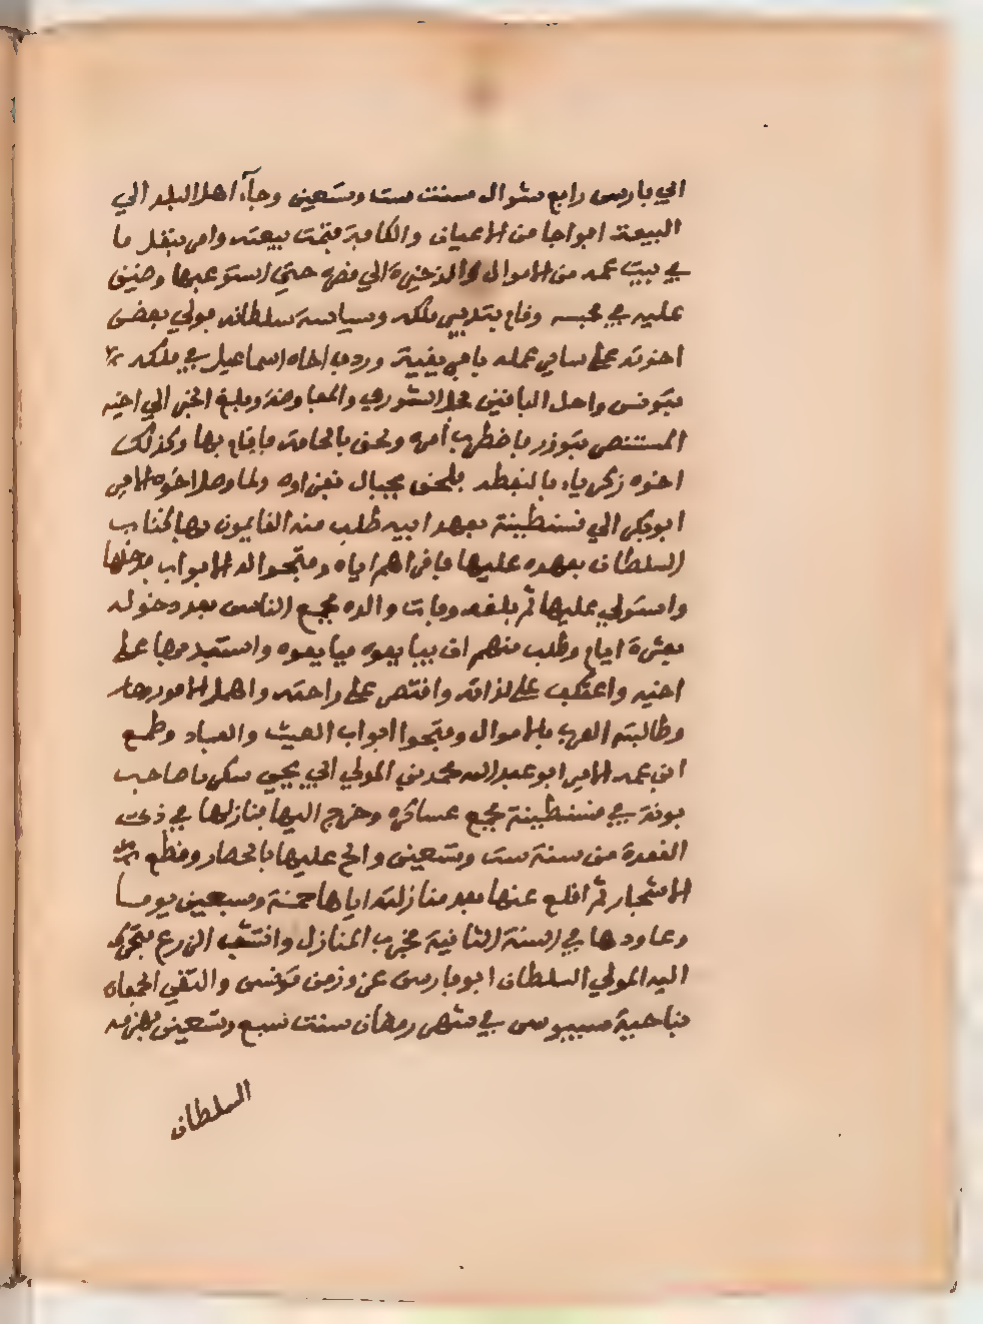 ابي بارس رابع شوال سنت ست وتسعين وجآء اهل البلد الي
البيعة افواجا من الاعيان والكافة فتمت بيعته وامر بنقل ما
في بيت عمه من الاموال والذخيرة الي قصره حتي استوعبها وضيق
عليه في محبسه وقام بتدبير ملكه وسياسة سلطانه فولي بعض
اخوته علي ساير عمله بافريقية وردف اخاه اسماعيل في ملكه
بتونس واحل الباقين محل الشوري والمفاوضة وبلغ الخبر الي اخيه
المستنصر بتوزر فاضطرب أمره ولحق بالحامة فاقام بها وكذلك
اخوه زكرياء بالنفطه فلحق بجبال نفزاوه ولما وصل اخوه الامير
ابوبكر الي قسنطينة بعهد ابيه طلب منه القايمون بها كتاب
السلطان بعهده عليها فاقراهم اياه وفتحوا له الابواب فدخلها
واستولي عليها ثم بلغه وفات والده فجمع الناس بعد دخوله
بعشرة ايام وطلب منهم ان يبايعوه فبايعوه واستبد بها علي
اخيه واعتكف علي لذاته واقتصر علي راحته واهمل الامور بها
وطالبته العرب بالاموال وفتحوا ابواب العيث والفساد وطمع
ابن عمه الامير ابو عبد الله محمد بن المولي ابي يحيي سكريا صاحب
بونة في قسنطينة فجمع عساكره وخرج اليها فنازلها في ذي
القعدة من سنة ست وتسعين والح عليها بالحصار وقطع
الاشجار ثم اقلع عنها بعد منازلته اياها خمسة وسبعين يوما
وعاودها في السنة الثانية فخرب المنازل وانتسف الزرع فتحرك
اليه المولي السلطان ابو بارس عزوز من تونس والتقي الجمعان
بناحية سيبوس في شهر رمضان سنت سبع وتسعين فهزمه
السلطان